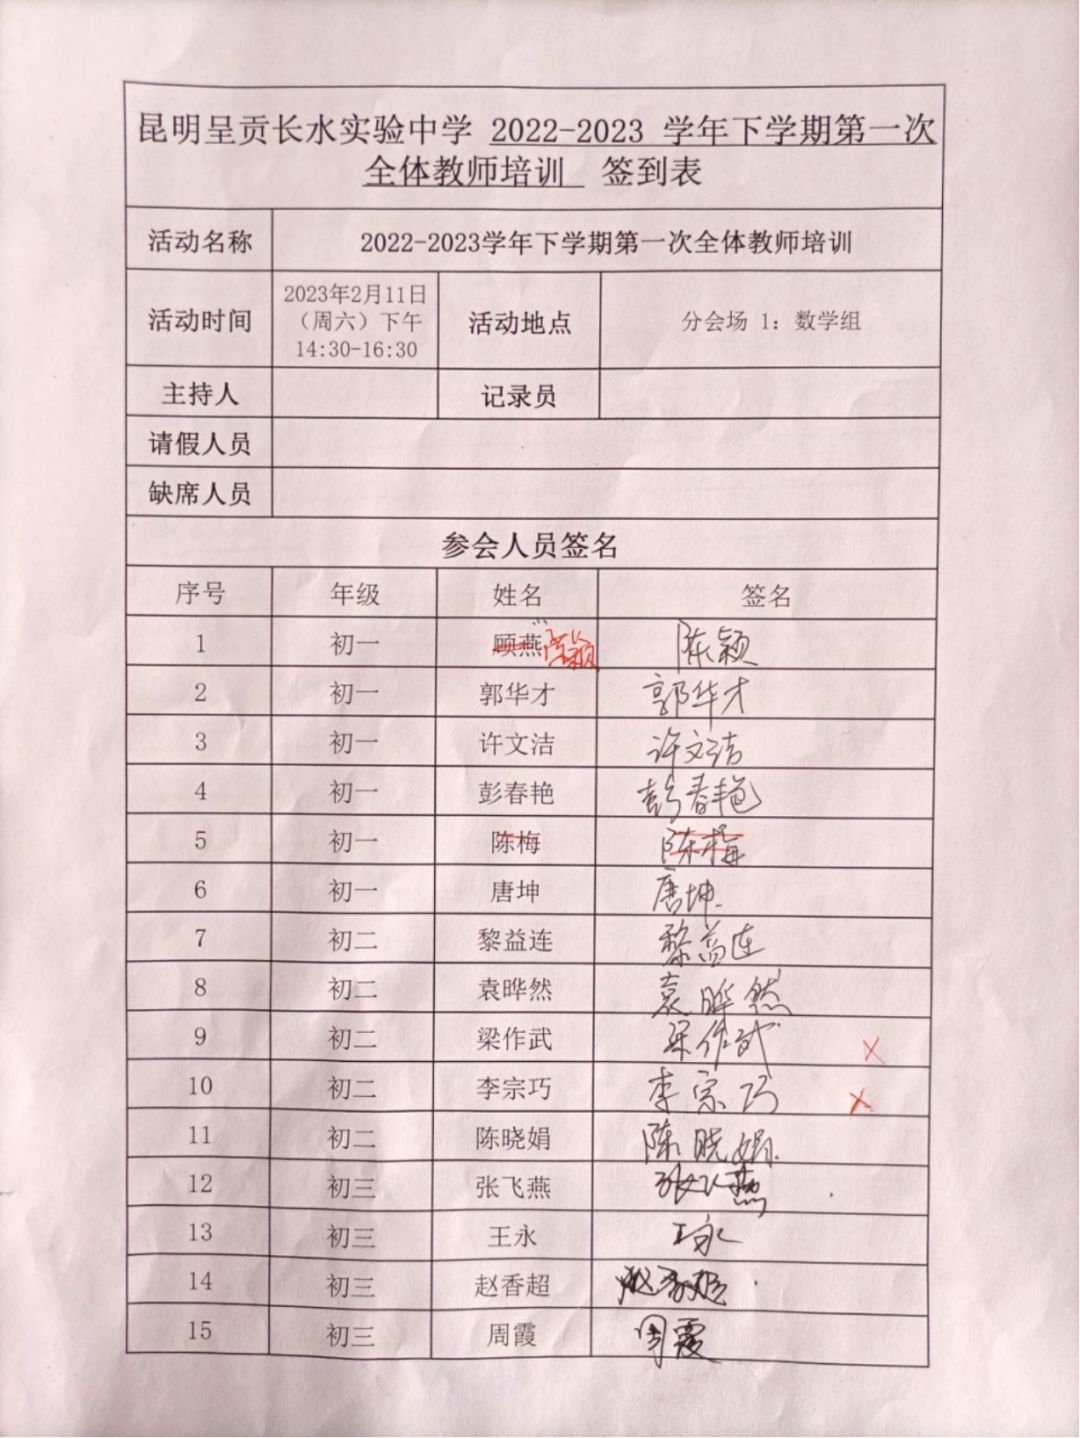 昆明呈贡长水实验中学 2022-2023 学年下学期第一次
全体教师培训 签到表
活动名称 2022-2023学年下学期第一次全体教师培训
活动时间 2023年2月11日
（周六）下午
14:30-16:30
活动地点 分会场 1：数学组
主持人 记录员
请假人员
缺席人员
参会人员签名
序号 年级 姓名 签名
1 初一 顾燕 陈颖 陈颖
2 初一 郭华才 郭华才
3 初一 许文洁 许文洁
4 初一 彭春艳 彭春艳
5 初一 陈梅 陈梅
6 初一 唐坤 唐坤
7 初二 黎益连 黎益连
8 初二 袁晔然 袁晔然
9 初二 梁作武 梁作武 ×
10 初二 李宗巧 李宗巧 ×
11 初二 陈晓娟 陈晓娟
12 初三 张飞燕 张飞燕
13 初三 王永 王永
14 初三 赵香超 赵香超
15 初三 周霞 周霞